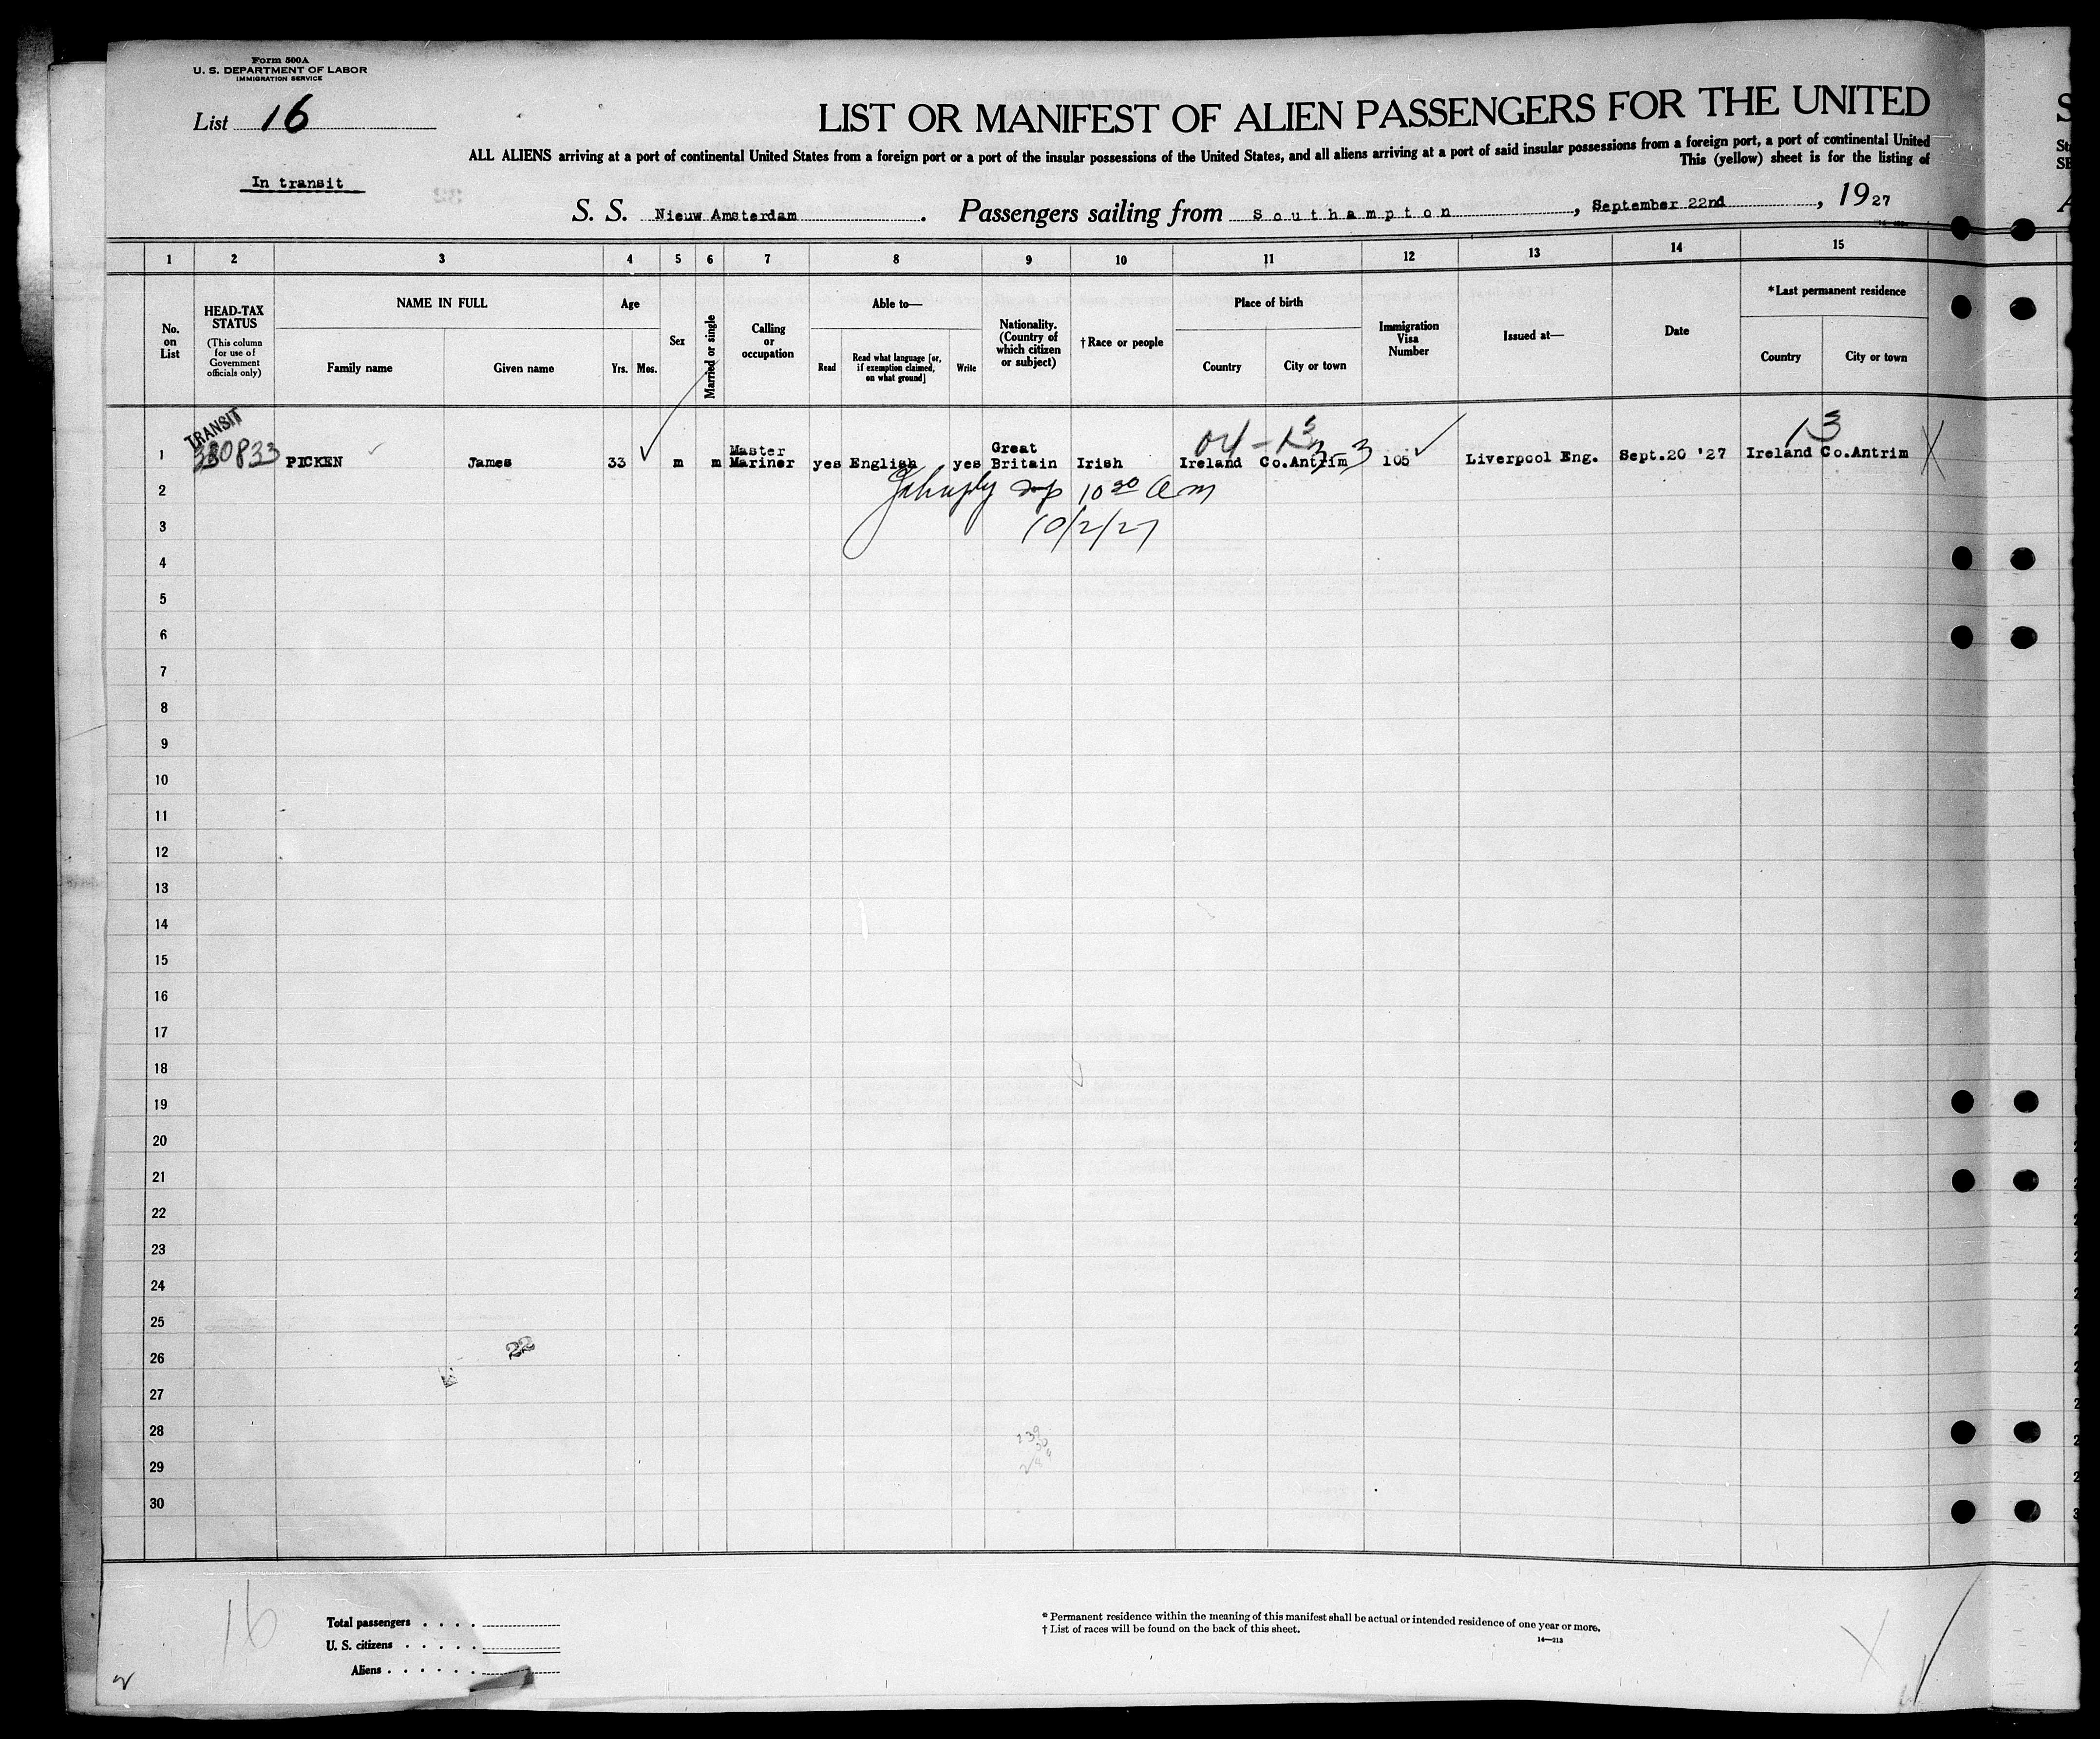 Form 500A
U. S. DEPARTMENT OF LABOR
IMMIGRATION SERVICE
List 16
In transit
LIST OR MANIFEST OF ALIEN PASSENGERS FOR THE UNITED
ALL ALIENS arriving at a port of continental United States from a foreign port or a port of the insular possessions of the United States, and all aliens arriving at a port of said insular possessions from a foreign port, a port of continental United
This (yellow) sheet is for the listing of
S. S. Nieuw Amsterdam . Passengers sailing from Southampton , September 22nd , 1927
1 2 3 4 5 6 7 8 9 10 11 12 13 14 15
No. on List
HEAD-TAX STATUS
(This column for use of Government officials only)
NAME IN FULL
Family name Given name
Age
Yrs. Mos.
Sex
Married or single
Calling or occupation
Able to—
Read
Read what language [or, if exemption claimed, on what ground]
Write
Nationality. (Country of which citizen or subject)
† Race or people
Place of birth
Country City or town
Immigration Visa Number
Issued at—
Date
* Last permanent residence
Country City or town
TRANSIT
04-13 13
1 PICKEN James 33 m m Master Mariner yes English yes Great Britain Irish Ireland Co.Antrim 105 Liverpool Eng. Sept.20 '27 Ireland Co.Antrim
2 10 30 am
3 10/2/27
4
5
6
7
8
9
10
11
12
13
14
15
16
17
18
19
20
21
22
23
24
25
22
26
27
28
29
30
16
Total passengers . . . .
U. S. citizens . . . . .
Aliens . . . . . .
* Permanent residence within the meaning of this manifest shall be actual or intended residence of one year or more.
† List of races will be found on the back of this sheet.
14—213